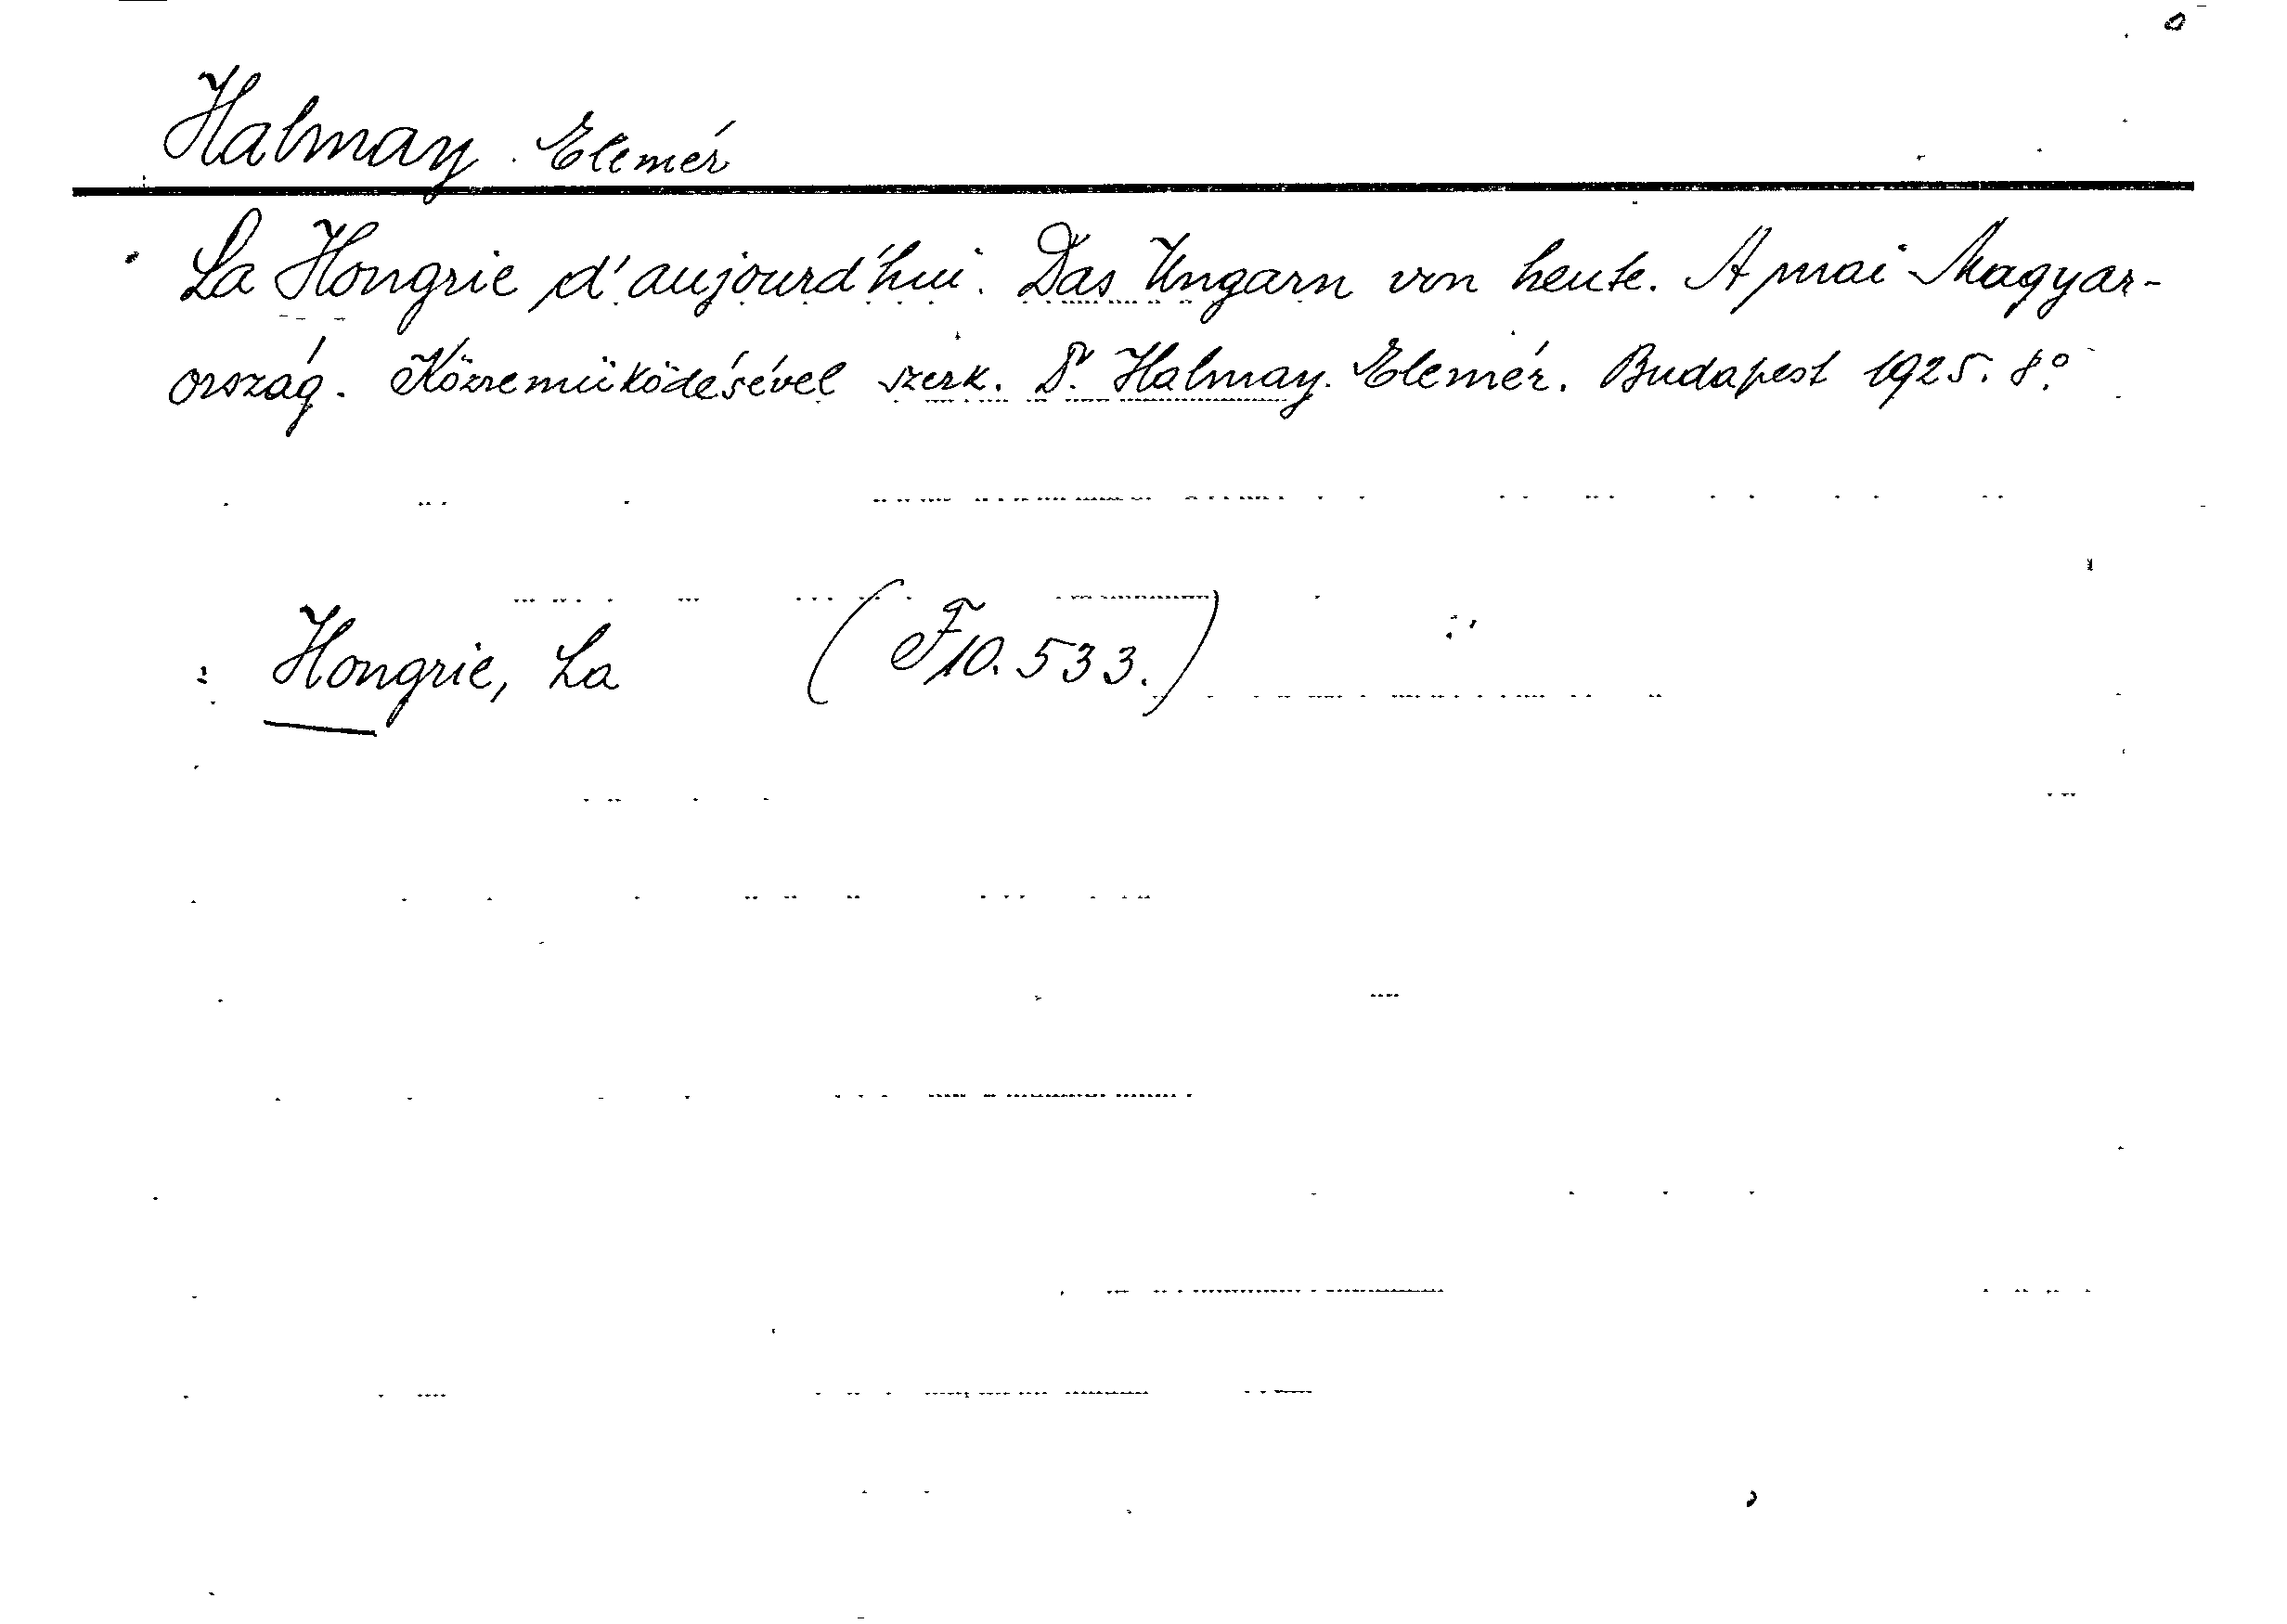 Halmay Elemér
La Hongrie d'aujourd'hui. Das Ungarn von heute. A mai Magyar-
ország. Közreműködésével szerk. Dr. Halmay Elemér. Budapest 1925. 8°
Hongrie, La (F10.533.)